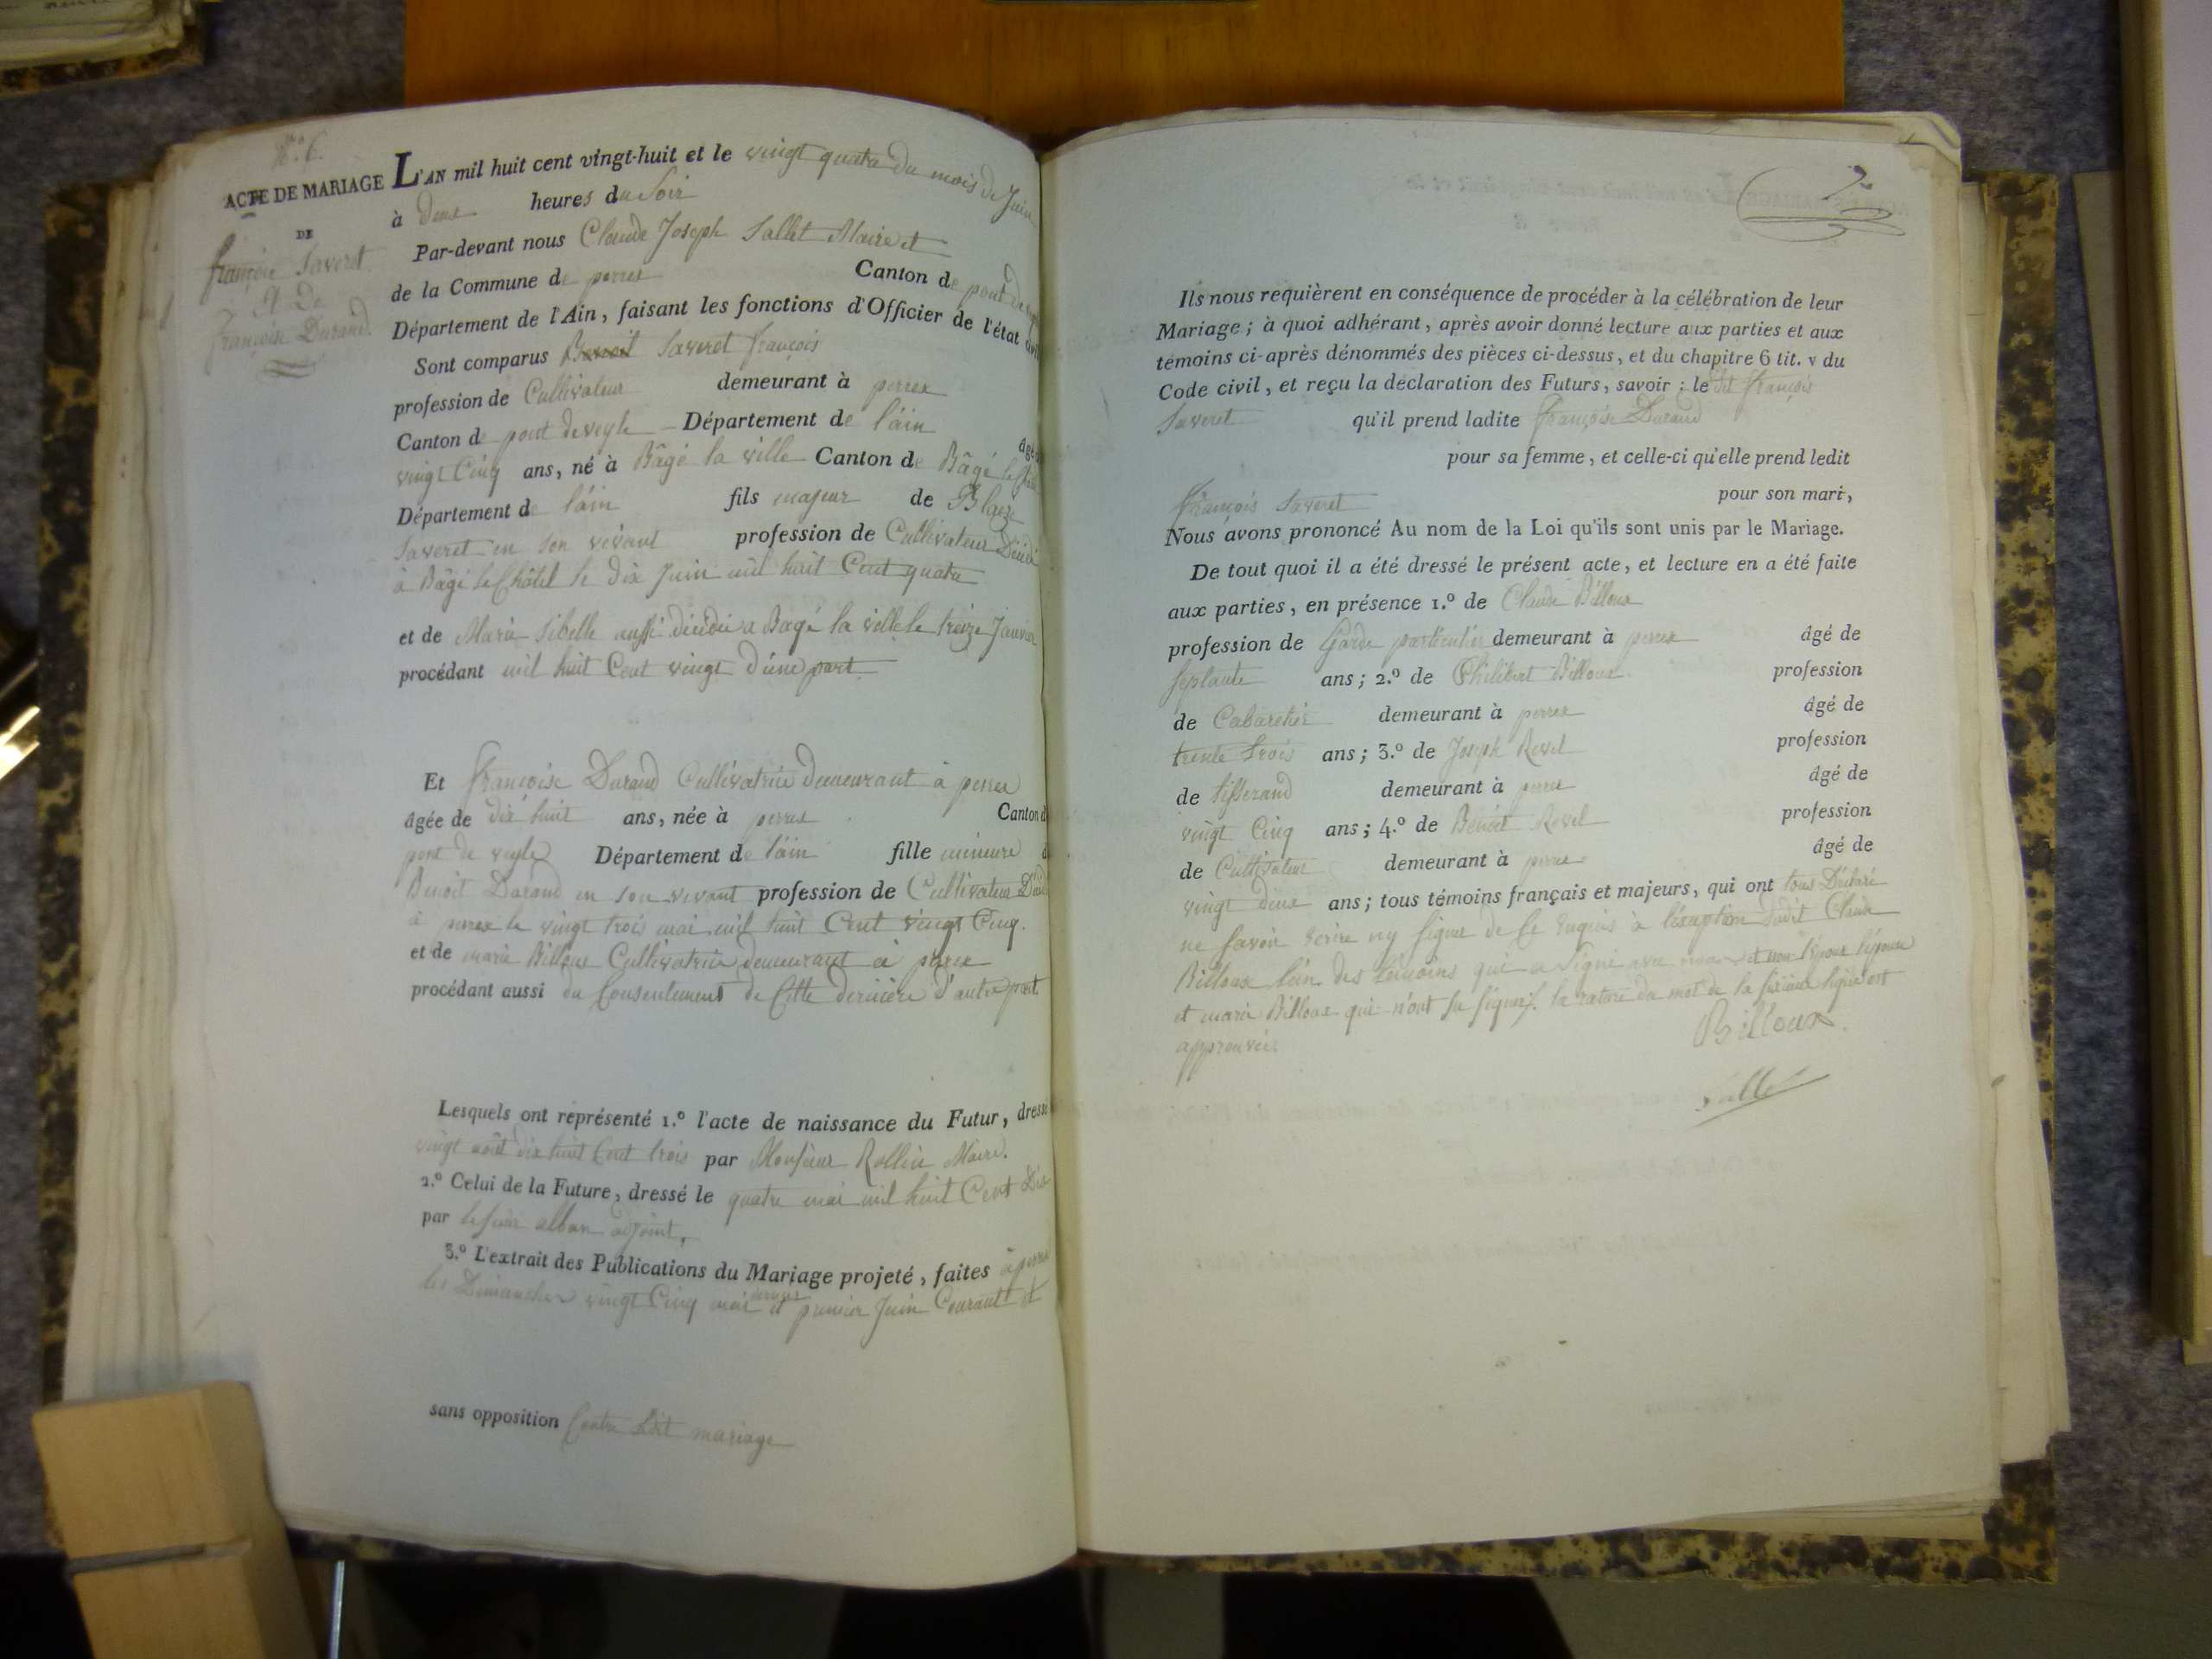 N.º 6.
ACTE DE MARIAGE
DE
françois Saveret
Et De
françoise Durand.
L'AN mil huit cent vingt-huit et le vingt quatre du mois de Juin
à deux heures du Soir
Par-devant nous Claude Joseph Sallet Maire et
de la Commune de perrex Canton de pont de
Département de l'Ain, faisant les fonctions d'Officier de l'état civil
Sont comparus Benoit Saveret françois
profession de Cultivateur demeurant à perrex
Canton de pont deveyle Département de l'ain
âgé
vingt Cinq ans, né à Bâgé la ville Canton de Bâgé le
Département de l'ain fils majeur de Blaise
Saveret en son vivant profession de Cultivateur Décédé
à Bâgé le Châtel le dix Juin mil huit Cent quatre
et de Marie Sibelle aussi décédée a Bagé la ville le treize Janvier
procédant mil huit Cent vingt d'une part
Et françoise Durand Cultivatrice demeurant à perrex
âgée de dix huit ans, née à perrex Canton d
pont de veyle Département de l'ain fille mineure d
Benoit Durand en son vivant profession de Cultivateur Décédé
à perrex le vingt trois mai mil huit Cent vingt Cinq.
et de marie Billoux Cultivatrice demeurant à perrex
procédant aussi du Consentement de Cette dernière d'autre part
Lesquels ont représenté 1.º l'acte de naissance du Futur, dressé
vingt août dix huit Cent trois par Monsieur Rollin Maire.
2.º Celui de la Future, dressé le quatre mai mil huit Cent Dix
par le sieur alban adjoint,
3.º L'extrait des Publications du Mariage projeté, faites à perrex
les Dimanches vingt Cinq mai dernier et premier Juin Courant et
sans opposition Contre Dit mariage
Ils nous requièrent en conséquence de procéder à la célébration de leur
Mariage; à quoi adhérant, après avoir donné lecture aux parties et aux
témoins ci-après dénommés des pièces ci-dessus, et du chapitre 6 tit. v du
Code civil, et reçu la déclaration des Futurs, savoir : le dit françois
Saveret qu'il prend ladite françoise Durand
pour sa femme, et celle-ci qu'elle prend ledit
françois Saveret pour son mari,
Nous avons prononcé Au nom de la Loi qu'ils sont unis par le Mariage.
De tout quoi il a été dressé le présent acte, et lecture en a été faite
aux parties, en présence 1.º de Claude Billoux
profession de Garde particulier demeurant à perrex âgé de
septante ans; 2.º de Philibert Billoux profession
de Cabaretier demeurant à perrex âgé de
trente trois ans; 3.º de Joseph Revel profession
de tisserand demeurant à perrex âgé de
vingt Cinq ans; 4.º de Benoit Revel profession
de Cultivateur demeurant à perrex âgé de
vingt deux ans; tous témoins français et majeurs, qui ont tous Déclaré
ne savoir Ecrire ny signer de Ce Enquis à l'exception dudit Claude
Billoux l'un des témoins qui a Signé avec nous et non l'époux l'épouse
et marie Billoux qui n'ont su signer. la rature du mot de la sixième ligne est
approuvée.
Billoux.
Sallet